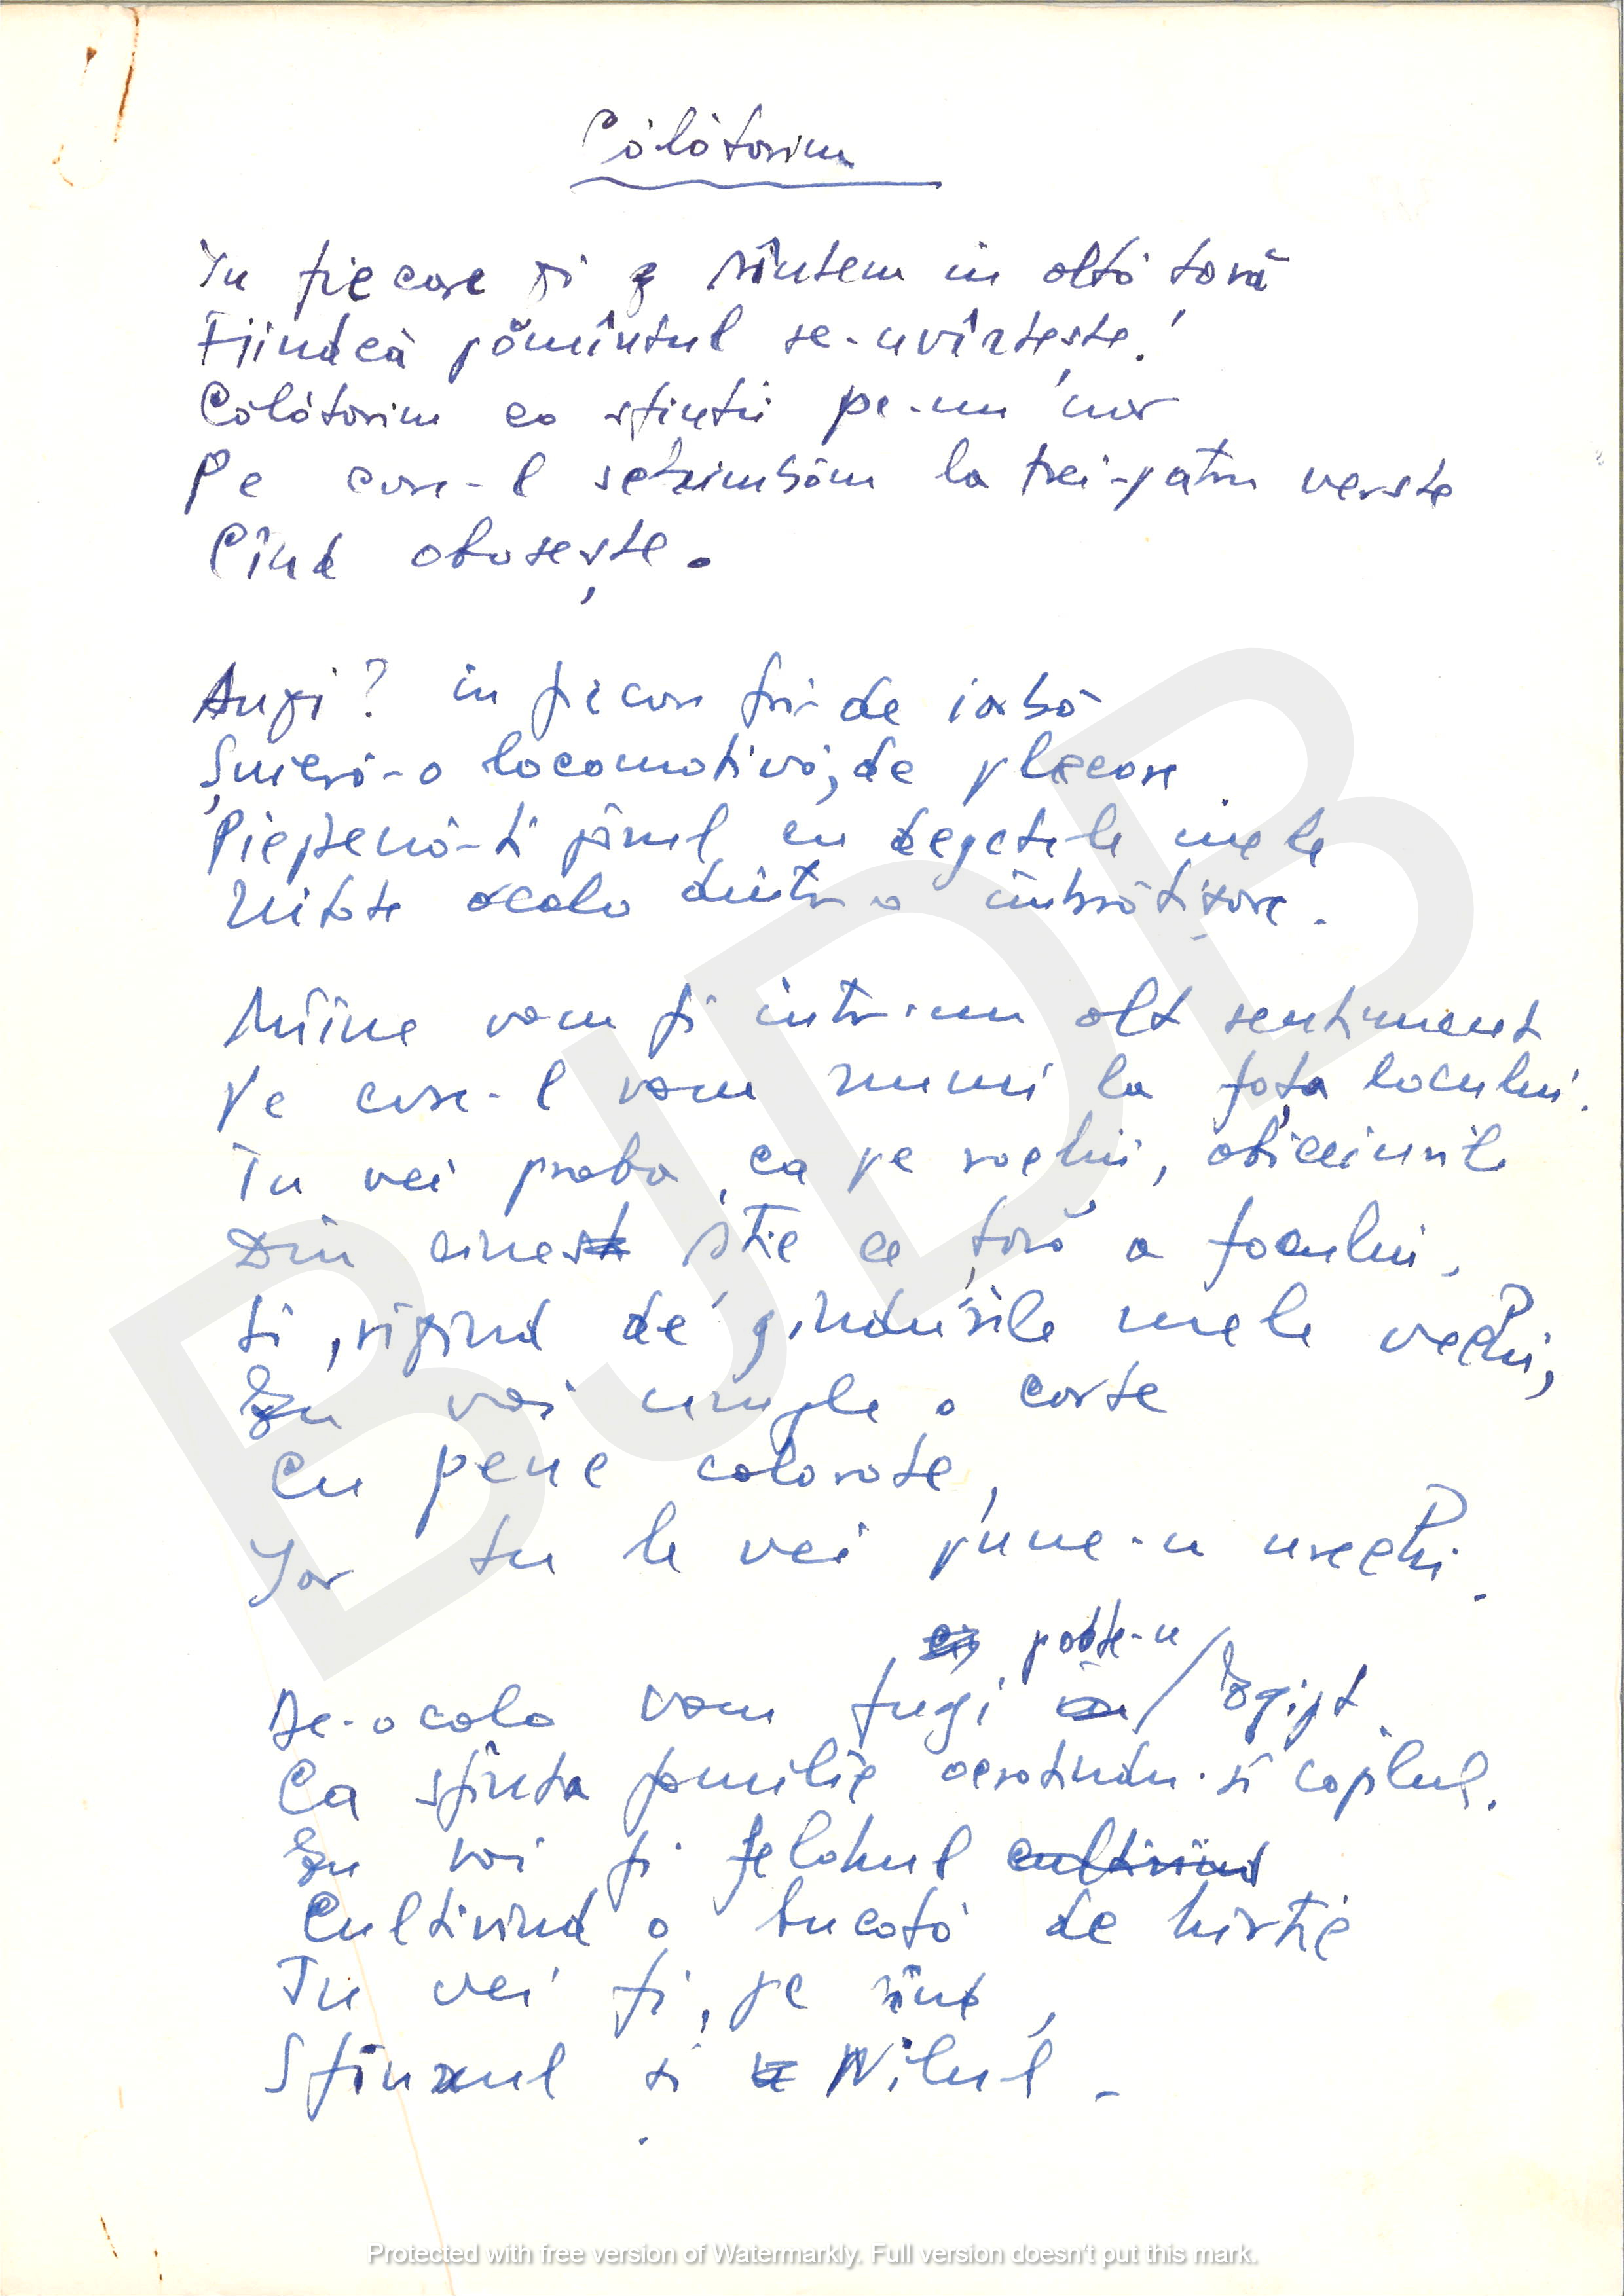 Călătorim
În fiecare zi sîntem în altă țară
Fiindcă pămîntul se-nvîrtește!
Călătorim ca sfinții pe-un nor
Pe care-l schimbăm la trei-patru verste
Cînd obosește.
Auzi? în fiecare fir de iarbă
Șuieră-o locomotivă, de plecare
Piepenă-ți părul cu degetele mele
Uitate acolo dintr-o îmbrățișare.
Mîine vom fi într-un alt sentiment
Pe care-l vom numi la fața locului.
Tu vei proba, ca pe rochii, obiceiurile
Din cine știe ce țară a focului,
Și, rîzînd de gîndurile mele vechi,
Eu voi umple o carte
Cu pene colorate,
Iar tu le vei pune-n urechi.
poate-n
De-acolo vom fugi în / Egipt
Ca sfînta familie ocrotindu-și copilul.
Eu voi fi felahul cultivînd
Cultivînd o bucată de hîrtie
Tu vei fi, pe rînd,
Sfinxul și Nilul.
BJDB
Protected with free version of Watermarkly. Full version doesn't put this mark.